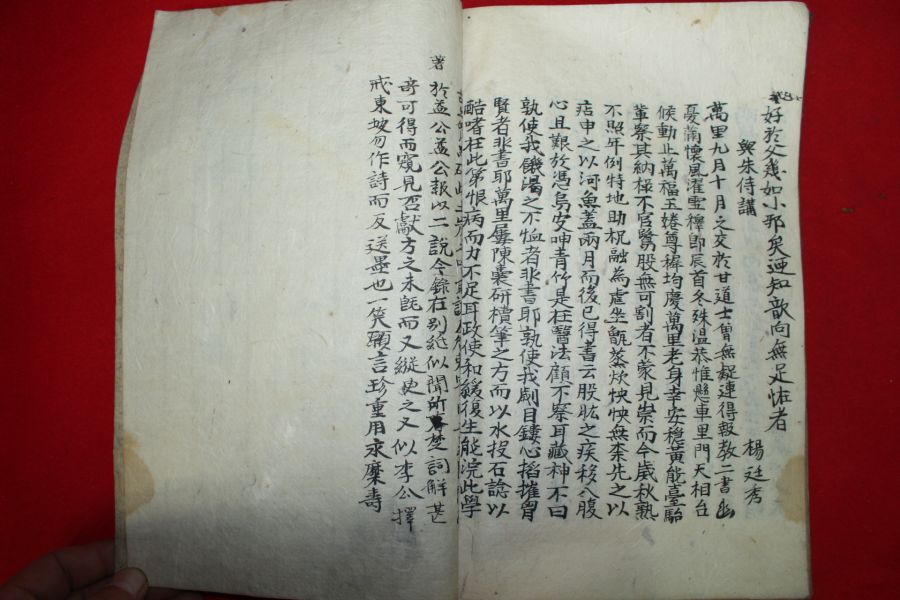 好於父幾如小邪矣迺知歆向無足怪者
與朱侍講 楊廷秀
萬里九月十月之交於甘道士曾無疑連得報教二書幽
憂蕭懷風濯雪釋即辰首冬殊溫恭惟懸車里門天相台
候動止萬福玉婘尊穉均慶萬里老身幸安穩黃能臺駘
輩察其納祿不官醫股無可割者不蒙見祟而今歲秋熟
不照年例特地助祝融為虐坐甑蒸炊怏怏無柰先之以
痁申之以河魚蓋兩月而後已得書云股肱之疾移入腹
心且艱於憑烏安呻青竹是枉醫法顧不察耳藏神不曰
孰使我饑渴之不恤者非書耶孰使我劌目鏤心掐擢胃
賢者非書耶萬里屢陳囊研櫝筆之方而以水投石諗以
酷嗜枉此第恨病而力不足耳政使和緩復生能浣此學
著
於益公益公報以二說今錄在別紙似聞所 楚詞解甚
奇可得而窺見否獻方之未既而又縱臾之又似李公擇
戒東坡勿作詩而反送墨也一笑顧言珍重用永糜壽